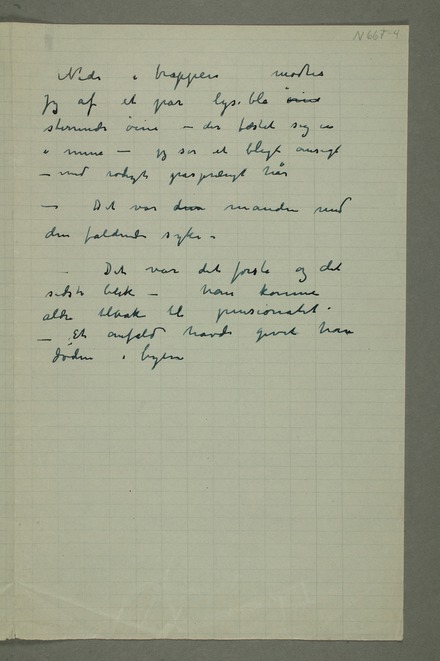 N 667-4
Nede i trappen mødtes
jeg af et par lyseblå øine
stirrende øine – der fæstet sig ind
i mine – jeg så et blegt ansigt
– med rødligt gråsprængt hår
– Det var den manden med
den faldende syke –
– Det var det første og det
sidste blik – han komme
aldri tilbak til pensionatet.
– Et anfald havde givet ham
døden i byen